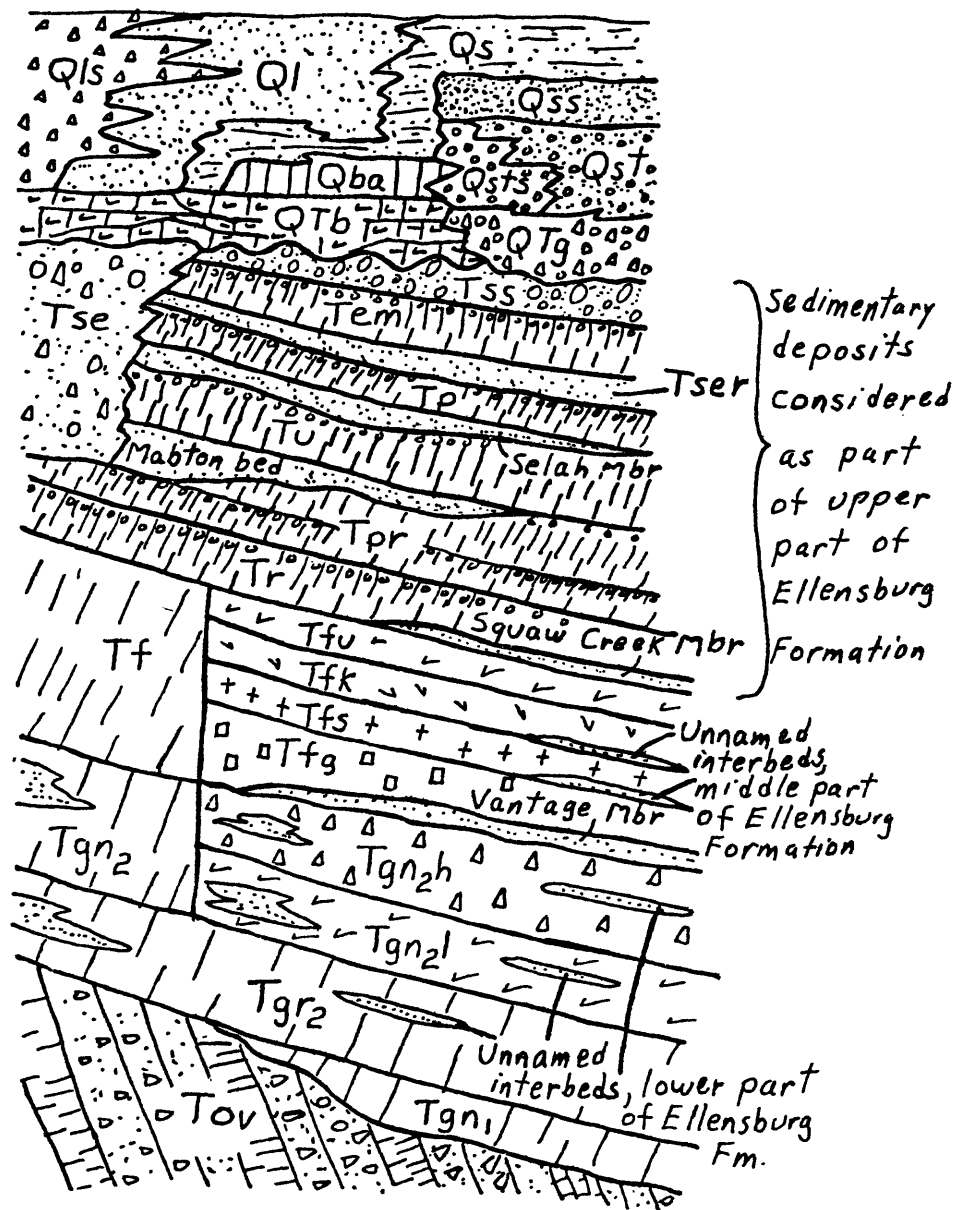 Qls
Ql
Qs
Qss
Qst
Qsts
Qba
QTb
QTg
Tse
Tss
Tem
Tser
Tp
Tu
Selah Mbr
Mabton bed
Tpr
Tr
Squaw Creek Mbr
Sedimentary
deposits
considered
as part
of upper
part of
Ellensburg
Formation
Tf
Tfu
Tfk
Tfs
Tfg
Unnamed
interbeds,
middle part
of Ellensburg
Formation
Vantage Mbr
Tgn2
Tgn2h
Tgn2l
Tgr2
Unnamed
interbeds, lower part
of Ellensburg
Fm.
Tgn1
Tov